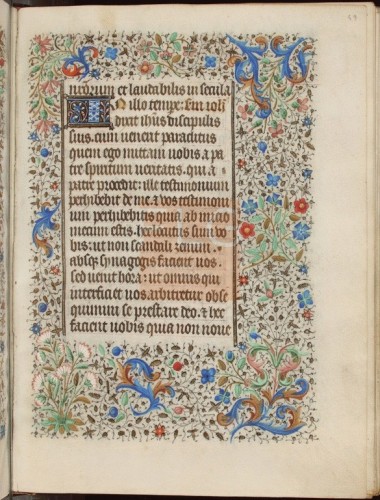 nrōrum et laudabilis in secula
IN illo tempe: Eu ioh
dixit ihūs discipulis
suis. cum uenerit paraclitus
quem ego mittam uobis. a pa
tre spiritum ueritatis. qui a
patre procedit: ille testimonium
perhibebit de me. & uos testimoni
um perhibebitis quia ab inicio
mecum estis. hec locutus sum vo
bis: ut non scandalizemini.
absq; synagogis facient uos.
sed uenit hora: ut omnis qui
interficit uos. arbitretur obse
quium se prestare deo. & hec
facient uobis quia non noue